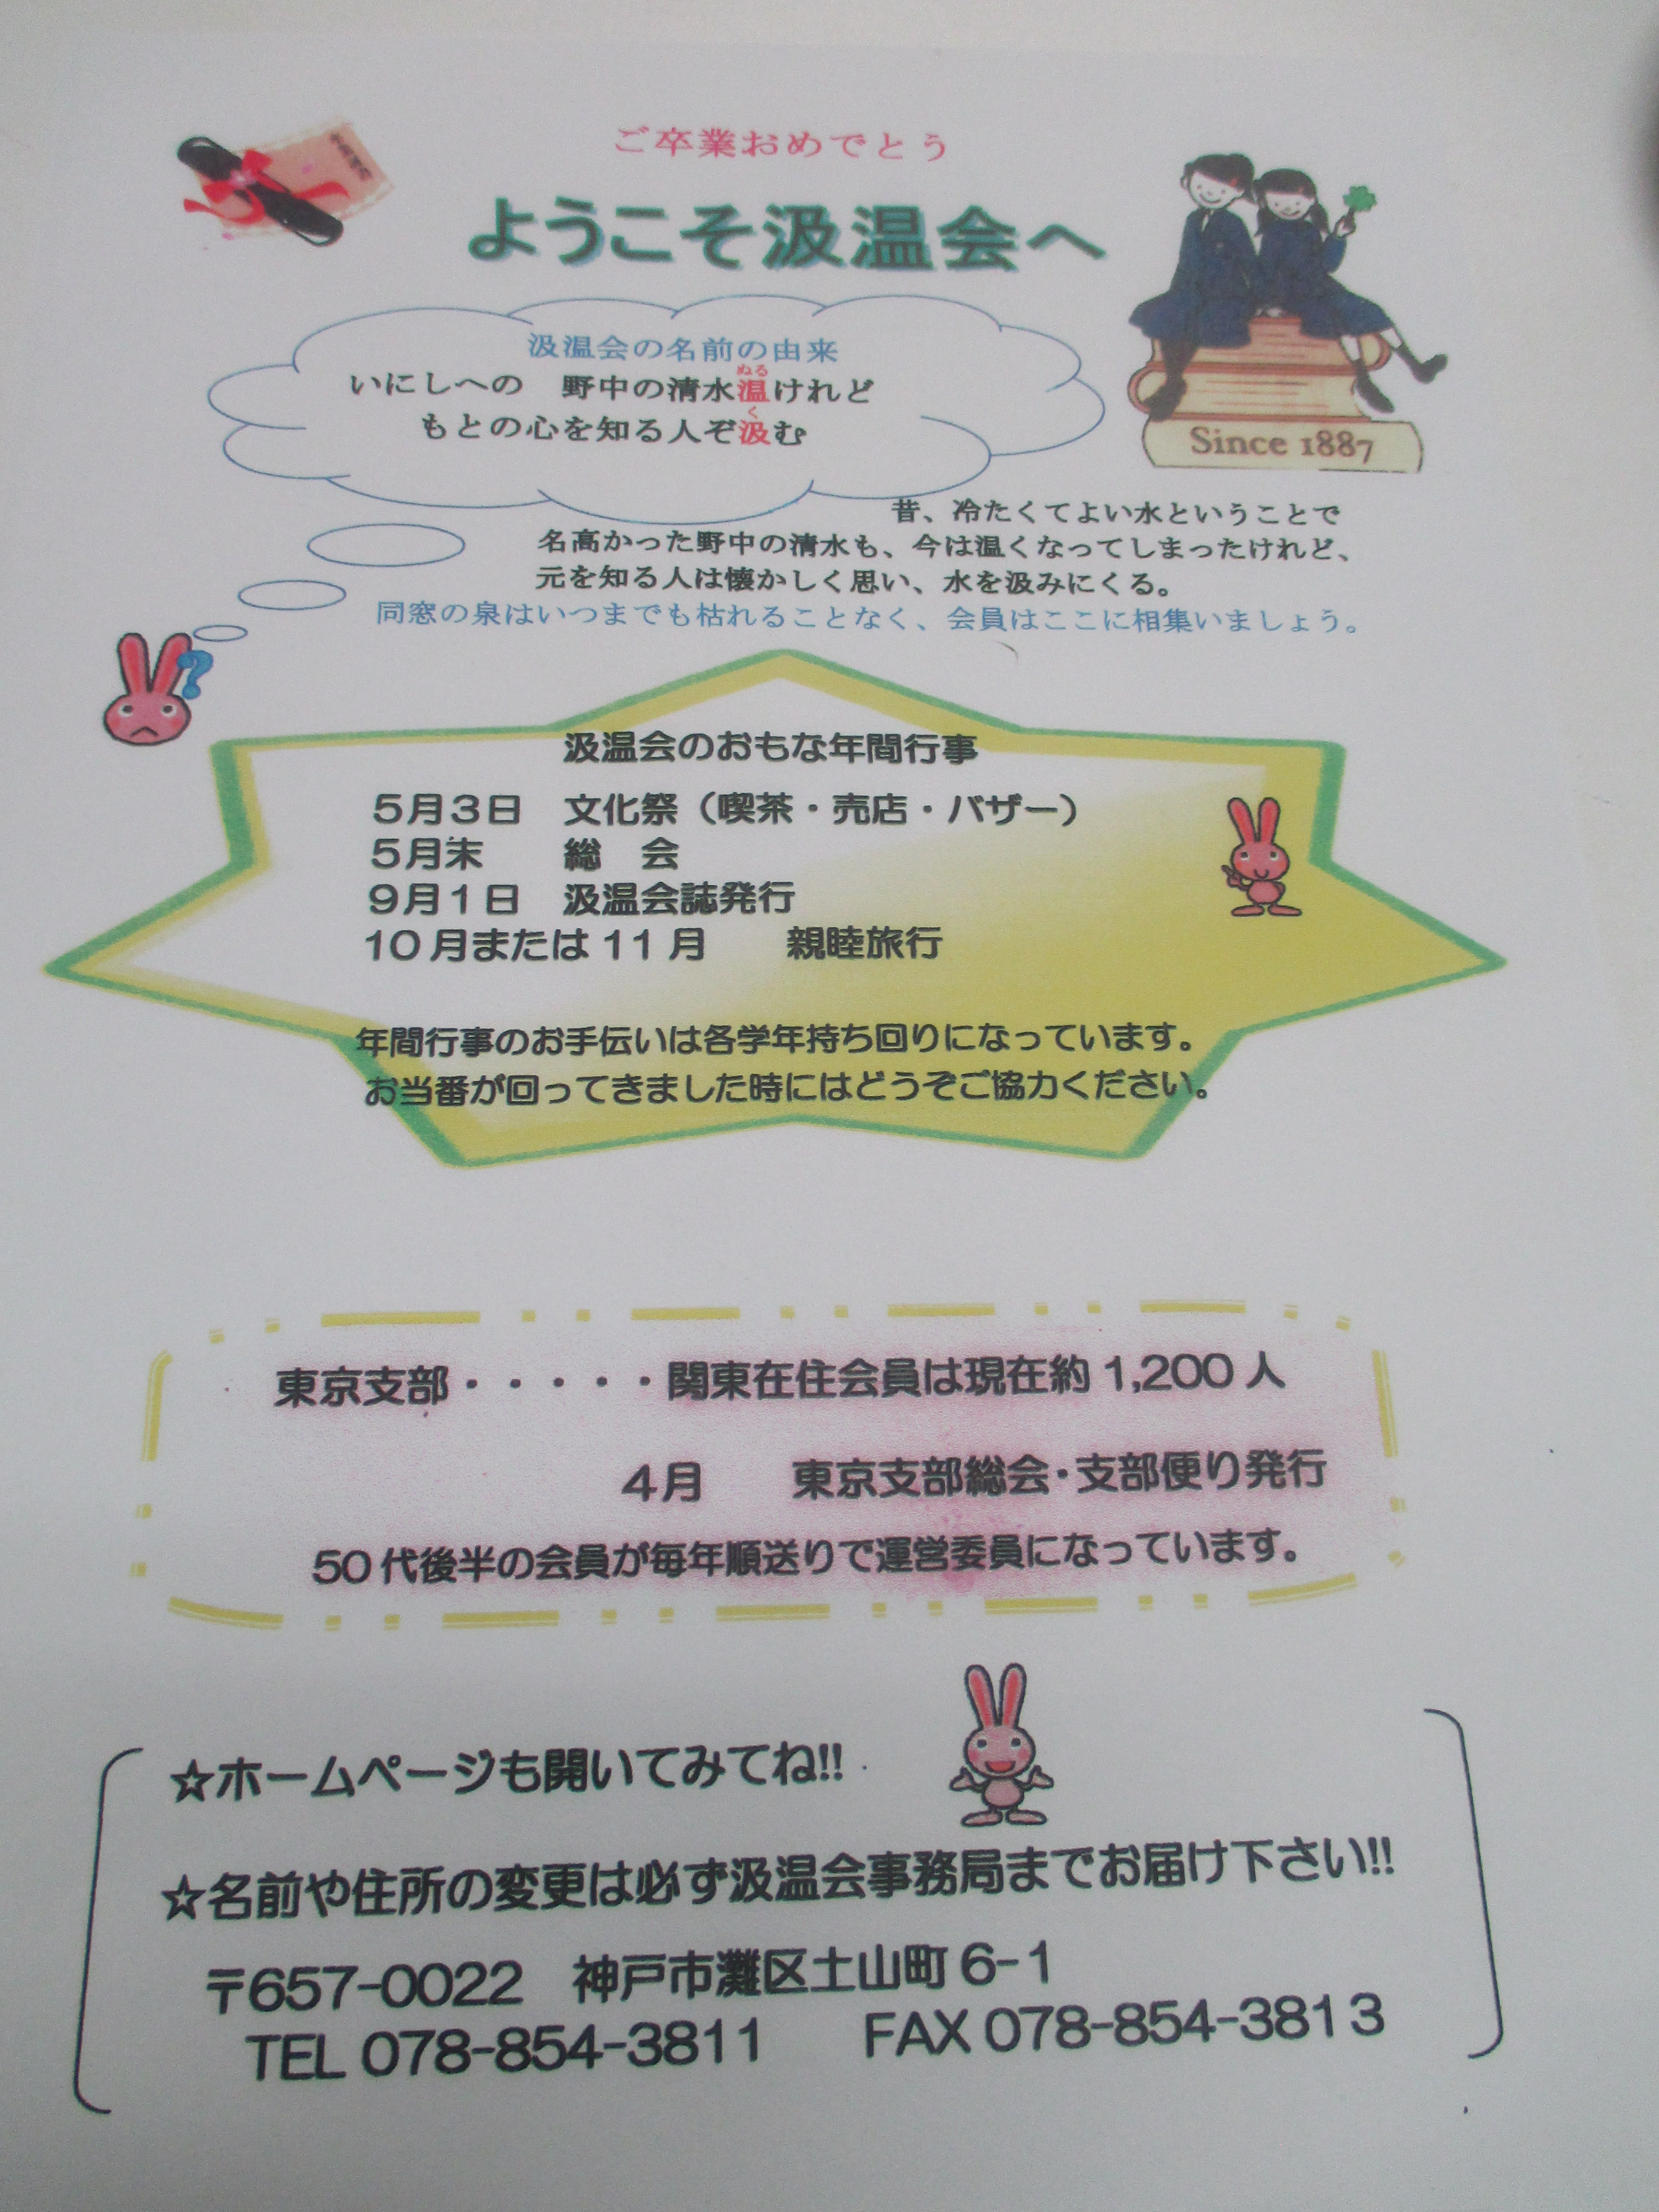 ご卒業おめでとう
ようこそ汲温会へ
汲温会の名前の由来
いにしへの　野中の清水温けれど
ぬる
もとの心を知る人ぞ汲む
く
Since 1887
昔、冷たくてよい水ということで
名高かった野中の清水も、今は温くなってしまったけれど、
元を知る人は懐かしく思い、水を汲みにくる。
同窓の泉はいつまでも枯れることなく、会員はここに相集いましょう。
?
汲温会のおもな年間行事
５月３日　文化祭（喫茶・売店・バザー）
５月末　　総　会
９月１日　汲温会誌発行
10月または11月　　親睦旅行
年間行事のお手伝いは各学年持ち回りになっています。
お当番が回ってきました時にはどうぞご協力ください。
東京支部・・・・・関東在住会員は現在約1,200人
４月　　東京支部総会・支部便り発行
50代後半の会員が毎年順送りで運営委員になっています。
☆ホームページも開いてみてね!!
☆名前や住所の変更は必ず汲温会事務局までお届け下さい!!
〒657-0022　神戸市灘区土山町6-1
TEL 078-854-3811　　FAX 078-854-3813